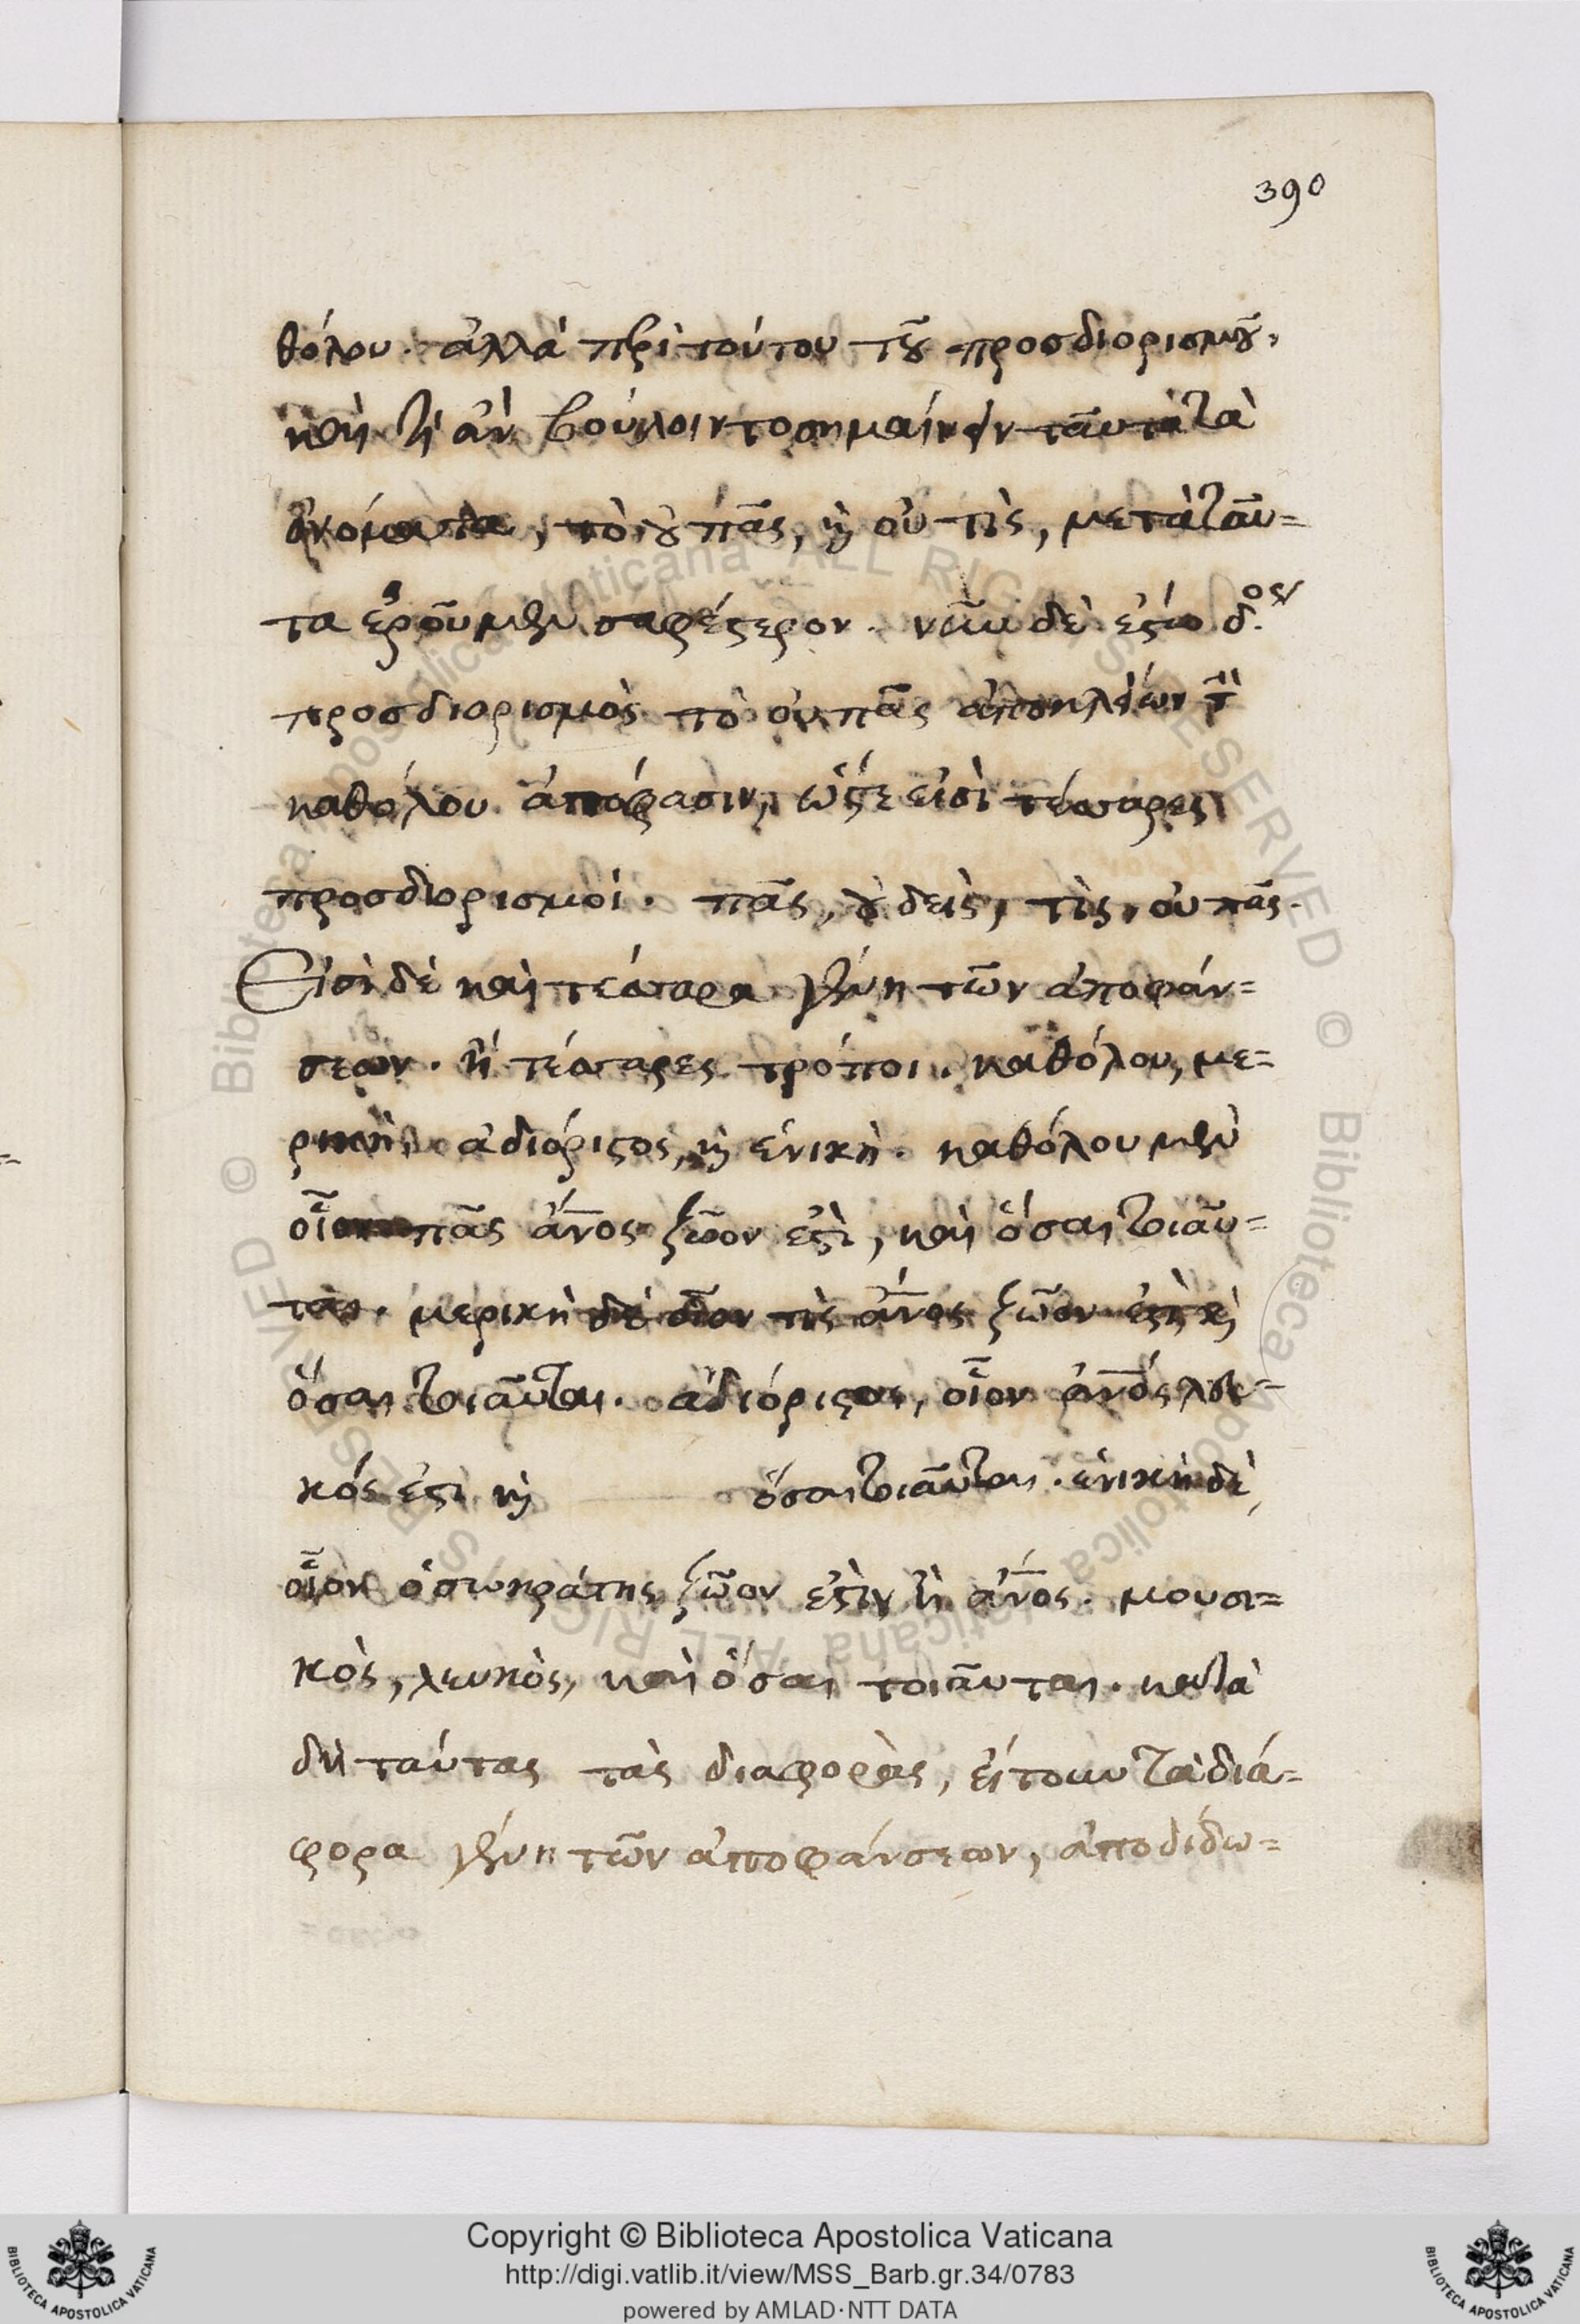 390
θόλου. ἀλλὰ περὶ τούτου τοῦ προσδιορισμοῦ,
καὶ τί ἂν βούλοιντο σημαίνειν ταῦτα τὰ
ὀνόματα, τὸ οὐ πᾶς, καὶ οὐ τὶς, μετὰ ταῦ=
τα ἐροῦμεν σαφέστερον. νῦν δὲ ἔστω δ.ος
προσδιορισμὸς τὸ οὐ πᾶς ἀποκλεῖων τὴν
καθόλου ἀπόφασιν, ὥστε εἰσὶ τέσσαρες
προσδιορισμοί. πᾶς, οὐδεὶς, τὶς, οὐ πᾶς.
Εἰσὶ δὲ καὶ τέσσαρα γένη τῶν ἀποφάν=
σεων. ἢ τέσσαρες τρόποι. καθόλου, με=
ρικὴ, ἀδιόριστος, καὶ ἑνικὴ. καθόλου μὲν
οἷον πᾶς ἄνος ζῶον ἐστὶ, καὶ ὅσαι τοιαῦ=
ται. μερικὴ δὲ οἷον τὶς ἄνος ζῶον ἐστὶ καὶ
ὅσαι τοιαῦται. ἀδιόριστος, οἷον ἄνος λευ=
κός ἐστι καὶ ὅσαι τοιαῦται. ἑνικὴ δὲ,
οἷον ὁ σωκράτης ζῶον ἐστὶν ἢ ἄνος. μουσι=
κὸς, λευκὸς, καὶ ὅσαι τοιαῦται. κατὰ
δὴ ταύτας τὰς διαφορὰς, εἴτουν τὰ διά=
φορα γένη τῶν ἀποφάνσεων, ἀποδίδω=
Copyright © Biblioteca Apostolica Vaticana
http://digi.vatlib.it/view/MSS_Barb.gr.34/0783
powered by AMLAD·NTT DATA